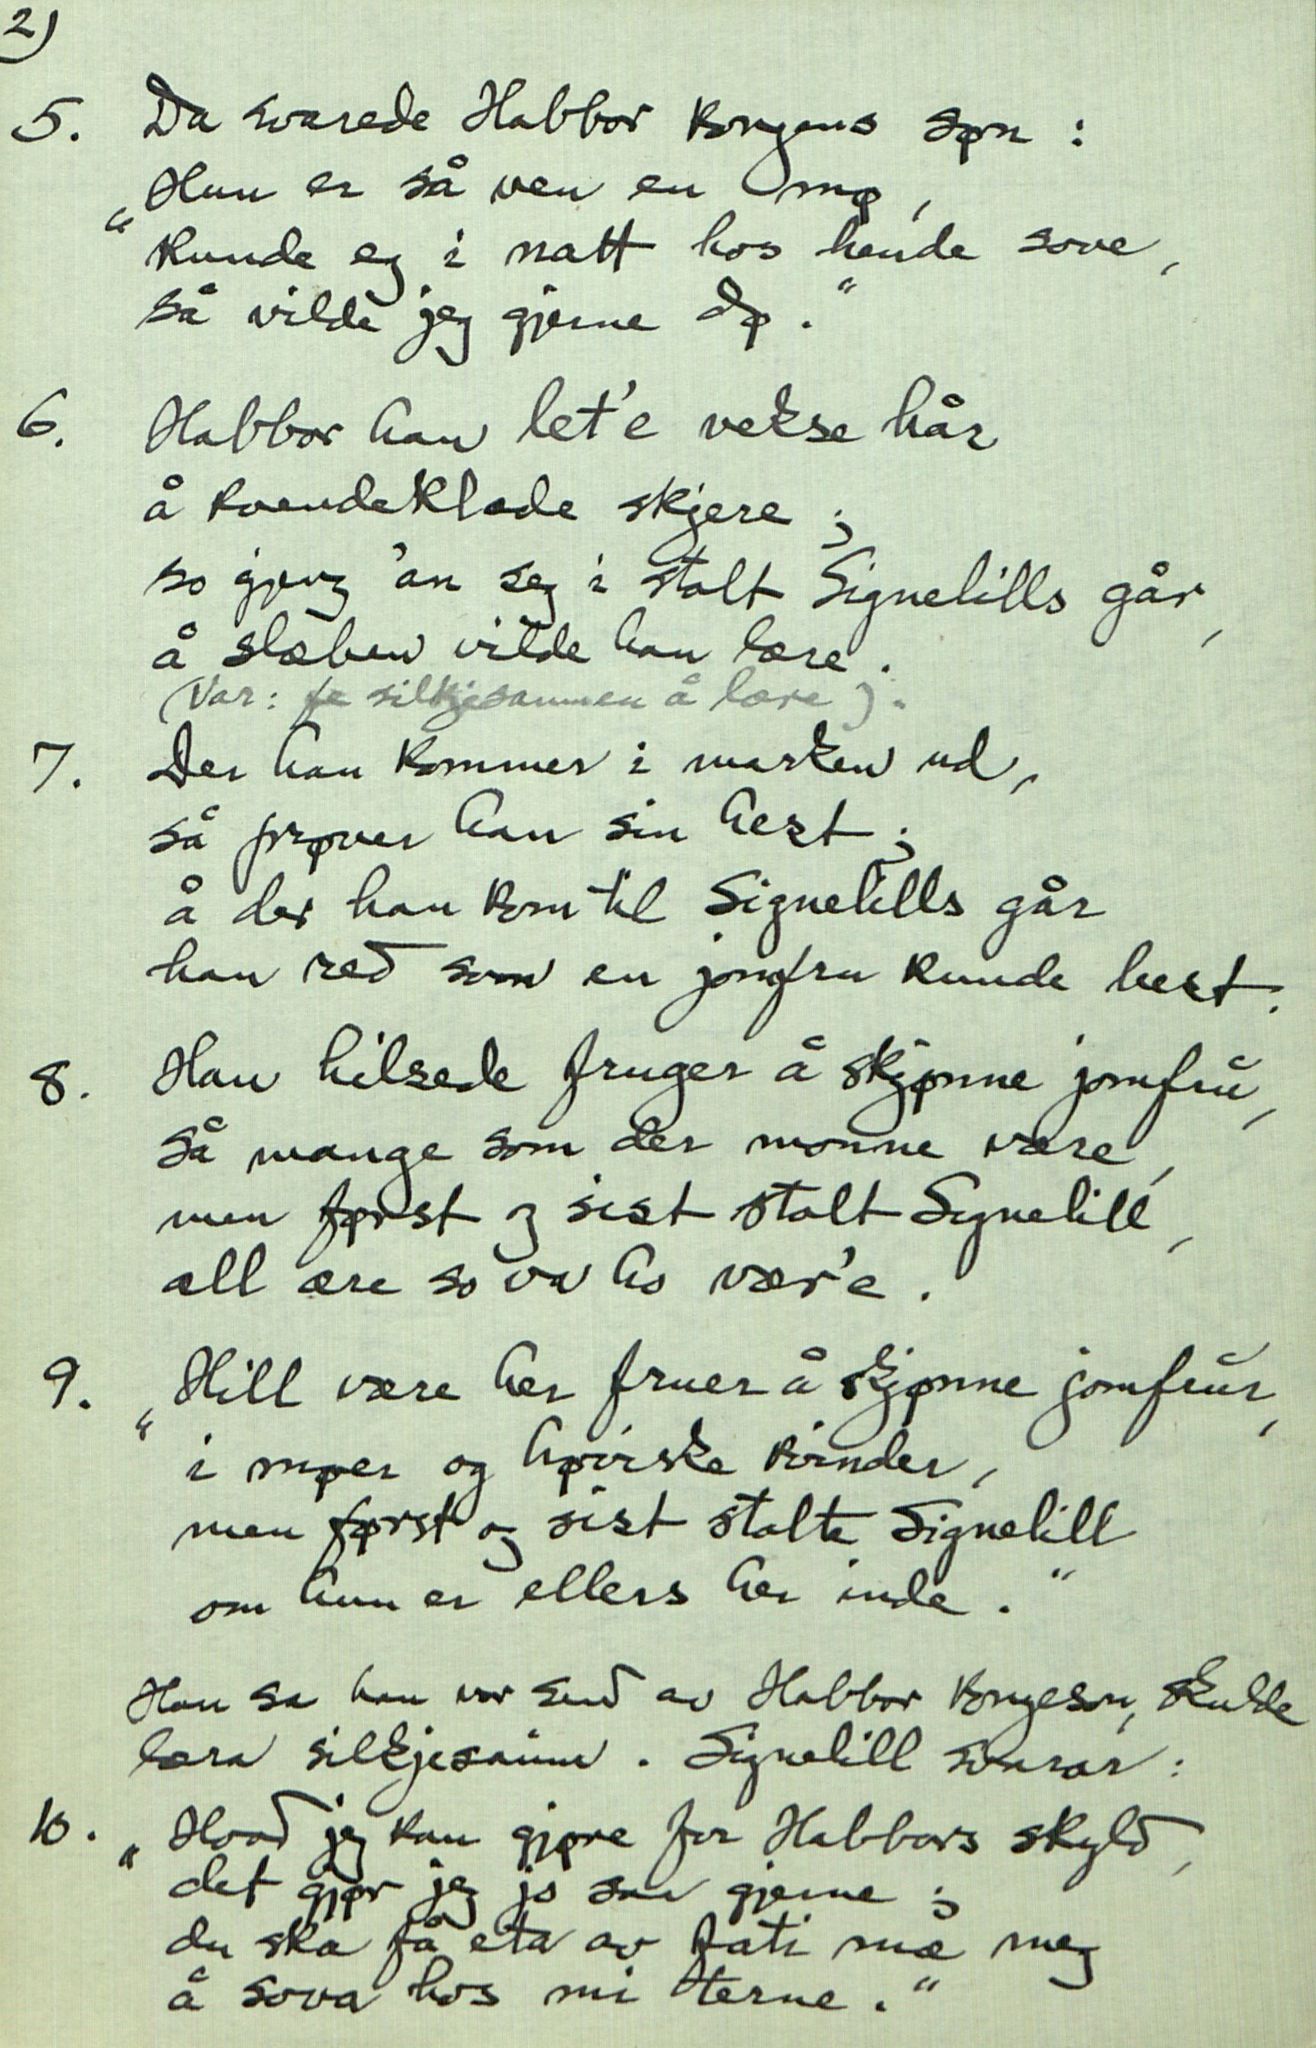 2)
5. Da svarede Habbor kongens søn :
„Hun er så ven en mø,
kunde eg i natt hos hende sove,
så vilde jeg gjerne dø.“
6. Habbor han let'e vekse hår
å kvendeklæde skjere ;
so gjeng 'an seg i stolt Signelills går,
å slæben vilde han lære.
(Var: fe silkjesaumen å lære).
7. Der han kommer i marken ud,
så prøver han sin hest ;
å der han kom til Signelills går
han red som en jomfru kunde best.
8. Han hilsede fruger å skjønne jomfrú,
så mange som der monne være,
men først og sist stolt Signelill,
all ære so va ho vær'e.
9. „Hill være her fruer å skjønne jomfrúr,
i møer og høviske kvinder,
men først og sist stolte Signelill
om hun er ellers her inde.“
Han sa han var send av Habbor kongeson, skulde
læra silkjesaum. Signelill svarar :
10. „Hvad jeg kan gjøre for Habbors skyld,
det gjør jeg jo saa gjerne ;
du ska få eta av fati mæ meg
å sova hos mi terne.“